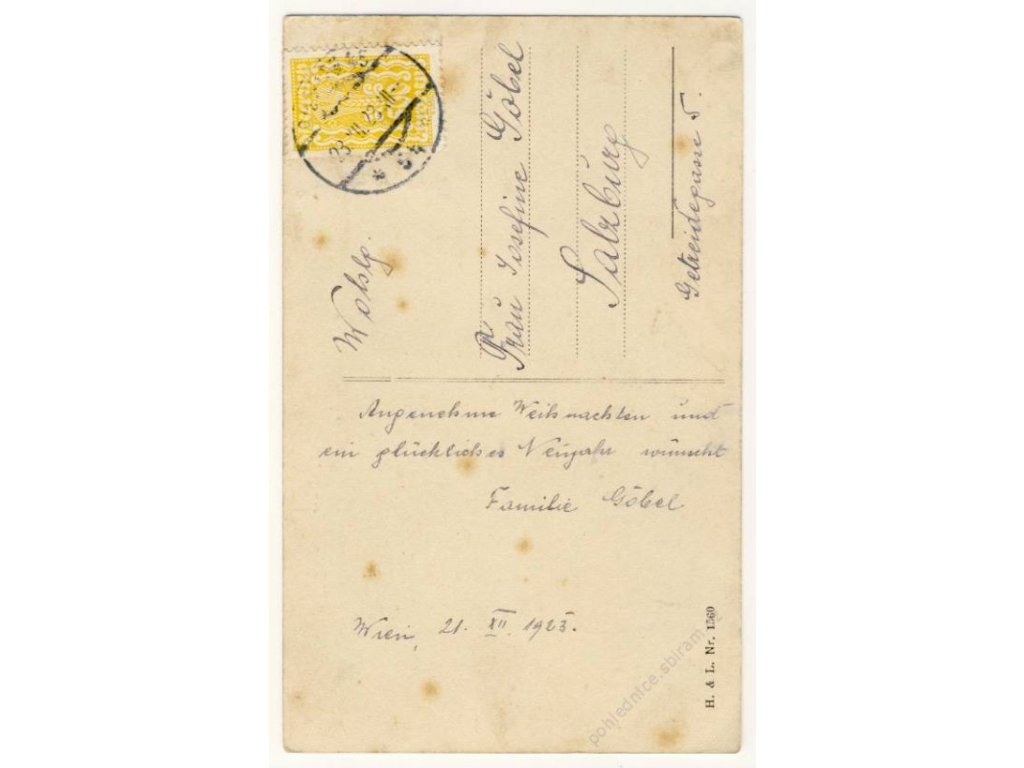 Wohlg.
Frau Josefine Göbel
Salzburg
Getreidegasse 5.
Angenehme Weihnachten und
ein glückliches Neujahr wünscht
Familie Göbel
Wien, 21. XII. 1923.
H. & L. Nr. 1560
pohlednice.sbiram